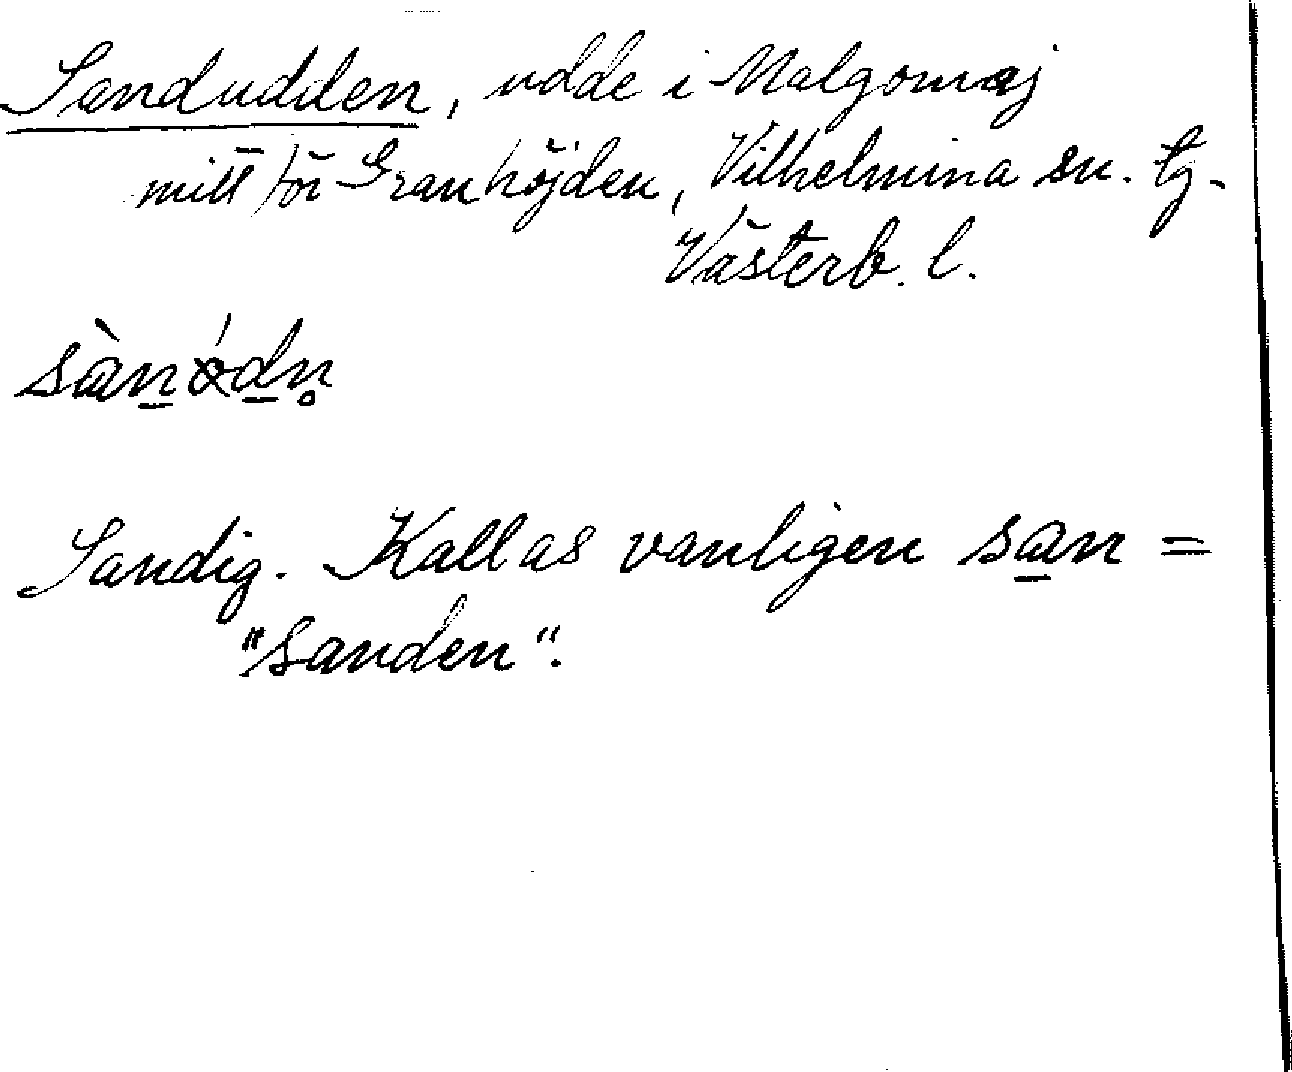 Sandudden, udde i Malgomaj
mitt för Granhöjden, Vilhelmina sn. tg.
Västerb. l.
Sandig. Kallas vanligen sa̱n =
"Sanden".